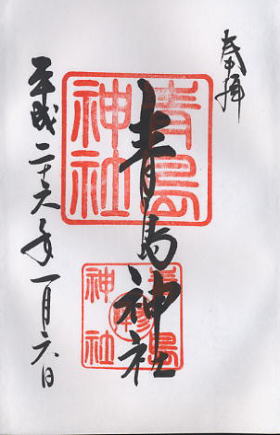 奉拝
青島神社
平成二十六年一月六日
青島
神社
青島
神社